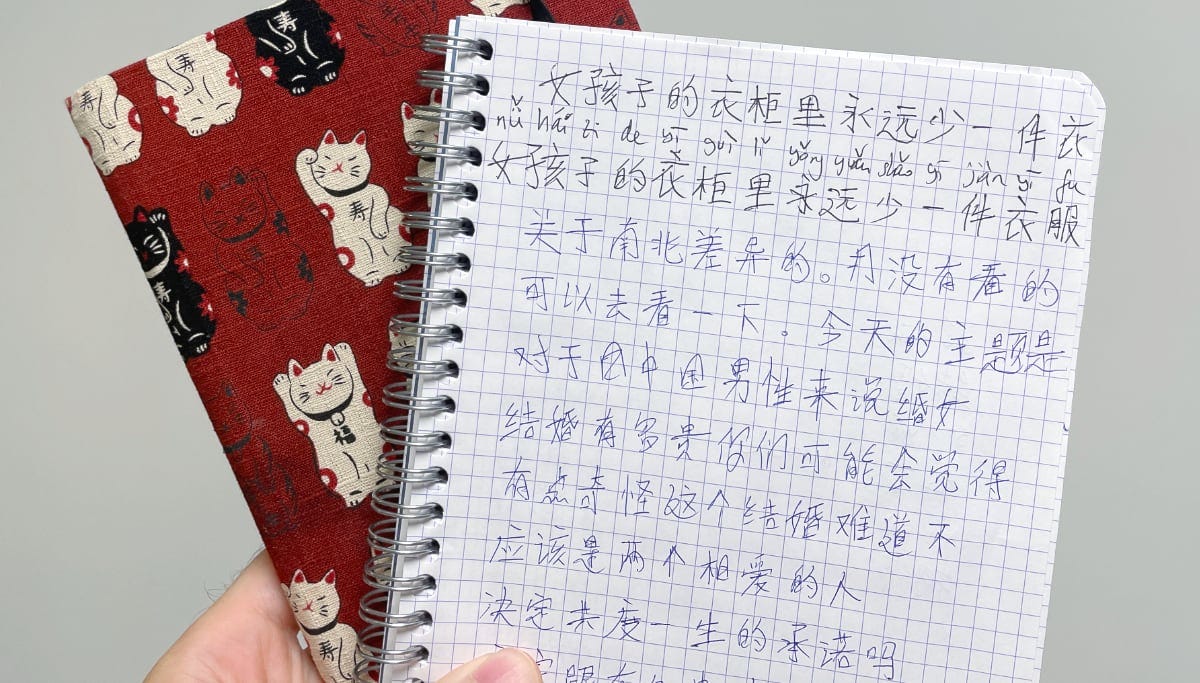 女孩子的衣柜里永远少一件衣
nǚ hái zi de yī guì lǐ yǒng yuǎn shǎo yī jiàn yī fu
女孩子的衣柜里永远少一件衣服
关于南北差异的。没有看的
可以去看一下。今天的主题是
对于中国男性来说婚女
结婚有多贵你们可能会觉得
有点奇怪这个结婚难道不
应该是两个相爱的人
决定共度一生的承诺吗
寿
寿
寿
寿
福
寿